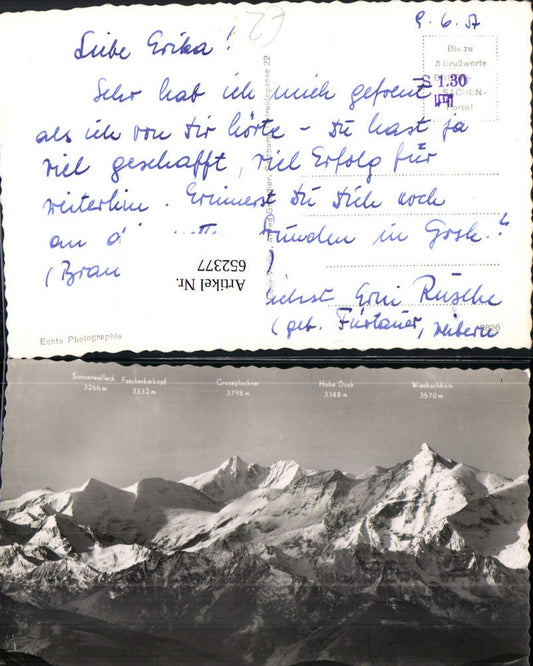 9. 6. 57
Liebe Erika!
Bis zu
5 Grußworte
S 1.30
SACHEN-
Porto!
Sehr hab ich mich gefreut
als ich von Dir hörte – Du hast ja
viel geschafft, viel Erfolg für
weiterhin. Erinnerst Du Dich noch
an d Stunden in Grok.?
(Brau )
Artikel Nr.
652377
Erni Rusche
(geb. Fürstauer,
Echte Photographie
Sonnenwelleck
3266 m
Fuscherkarkopf
3332 m
Grossglockner
3798 m
Hohe Dock
3348 m
Wiesbachhorn
3570 m